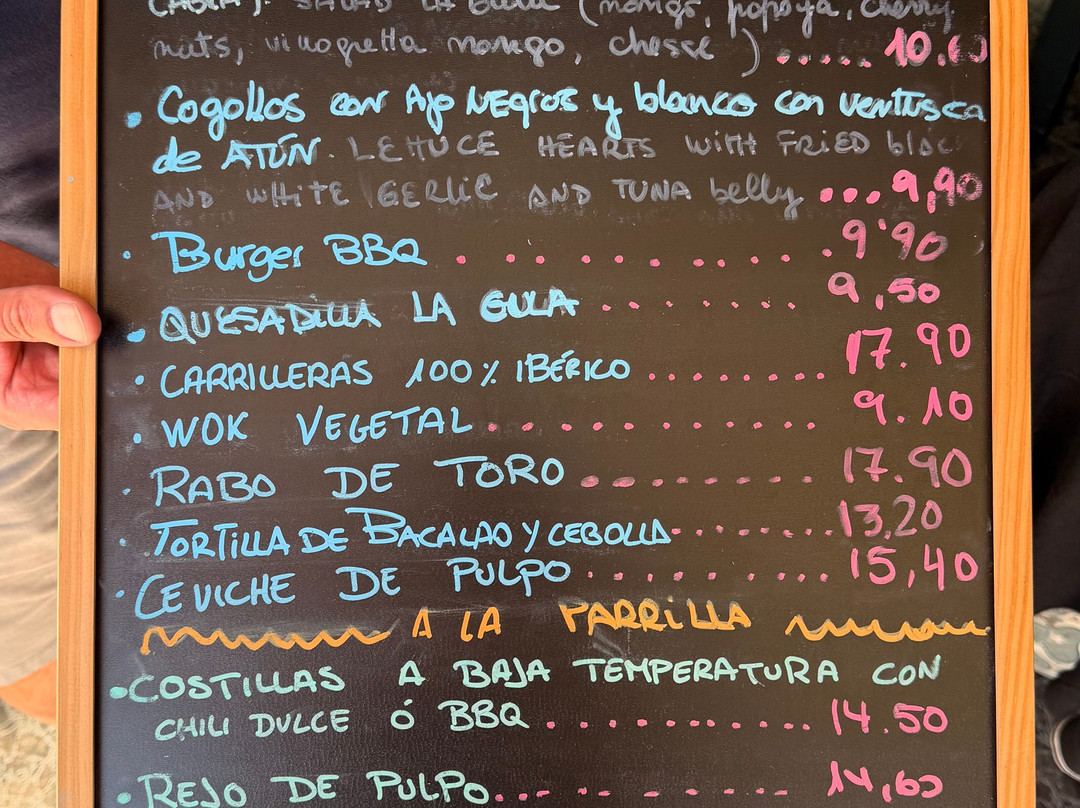 SALAD LA GULA (mango, papaya, cherry
nuts, vinagretta mango, chesse)..... 10.60
• Cogollos con Ajo NEgros y blanco con ventresca
de ATÚN. LETTUCE HEARTS WITH FRIED blac
AND WHITE GERLIC AND TUNA belly ... 9,90
• Burger BBQ . . . . . . . . . . 9'90
• QUESADILLA LA GULA . . . . . . . 9,50
• CARRILLERAS 100% IBÉRICO ......... 17.90
• WOK VEGETAL. . . . . . . . . . 9.10
• RABO DE TORO......... 17.90
• TORTILLA DE BACALAO Y CEBOLLA......... 13,20
• CEVICHE DE PULPO......... 15,40
A LA PARRILLA
• COSTILLAS A BAJA TEMPERATURA CON
CHILI DULCE Ó BBQ........... 14.50
• REJO DE PULPO........... 14,60